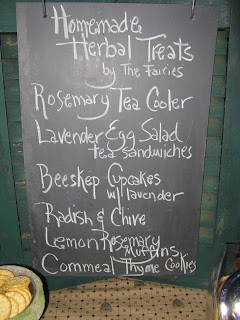 Homemade
Herbal Treats
by The Fairies
Rosemary Tea Cooler
Lavender Egg Salad
tea sandwiches
Beeskep Cupcakes
w/ lavender
Radish & Chive
Lemon Rosemary
Muffins
Cornmeal Thyme Cookies